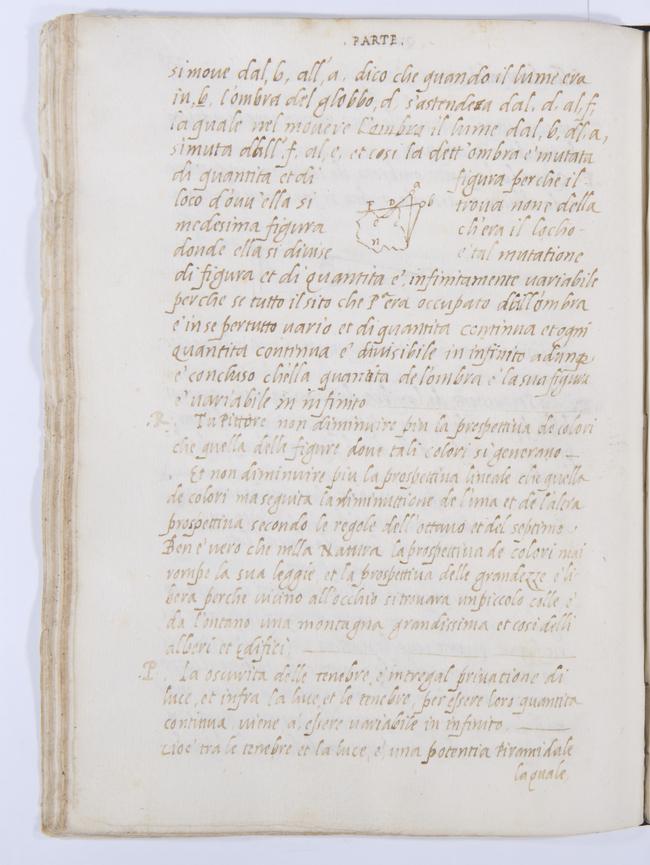 . PARTE .
si move dal, b, all', a. dico che quando il lume era
in, b, l'ombra del globbo, d, s'astendeva dal. d. al, f,
la quale nel movere l'ombra il lume dal, b, al, a,
si muta dall', f, al, e, et cosi la dett'ombra e' mutata
di quantita et di figura perche il
loco d'ovu' ella si trova none della
medesima figura ch'era il locho
donde ella si divise e' tal mutatione
di figura et di quantita e', infinitamente variabile
perche se tutto il sito che Pª era occupato dall'ombra
e' in se per tutto vario et di quantita continua et ogni
quantita continua e' divisibile in infinito adunq,
e' concluso ch'ella quantita de l'ombra e la sua figura
e' variabile in infinito
Tu Pittore non diminuire piu la prospettiva de colori
che quella della figure dove tali colori si generano
. Et non diminuire piu la prospettiva lineale che quella
de colori ma seguita la diminuttione de l'una et de l'altra
prospettiva secondo le regole dell'ottavo et del septimo.
Ben e' vero che nella Natura la prospettiva de colori mai
rompe la sua leggie, et la prospettiva delle grandezze e' li-
bera perche vicino all'occhio si trovara un piccolo colle, e'
da l'ontano una montagna grandissima et cosi delli
alberi et edifici,
.P. La oscurita delle tenebre, e', intregal privatione di
luce, et infra la luce, et le tenebre, per essere loro quantita
continua, viene a' essere variabile in infinito,
cioe' tra le tenebre et la luce, e', una potentia Piramidale
la quale,
F D a b
e
n